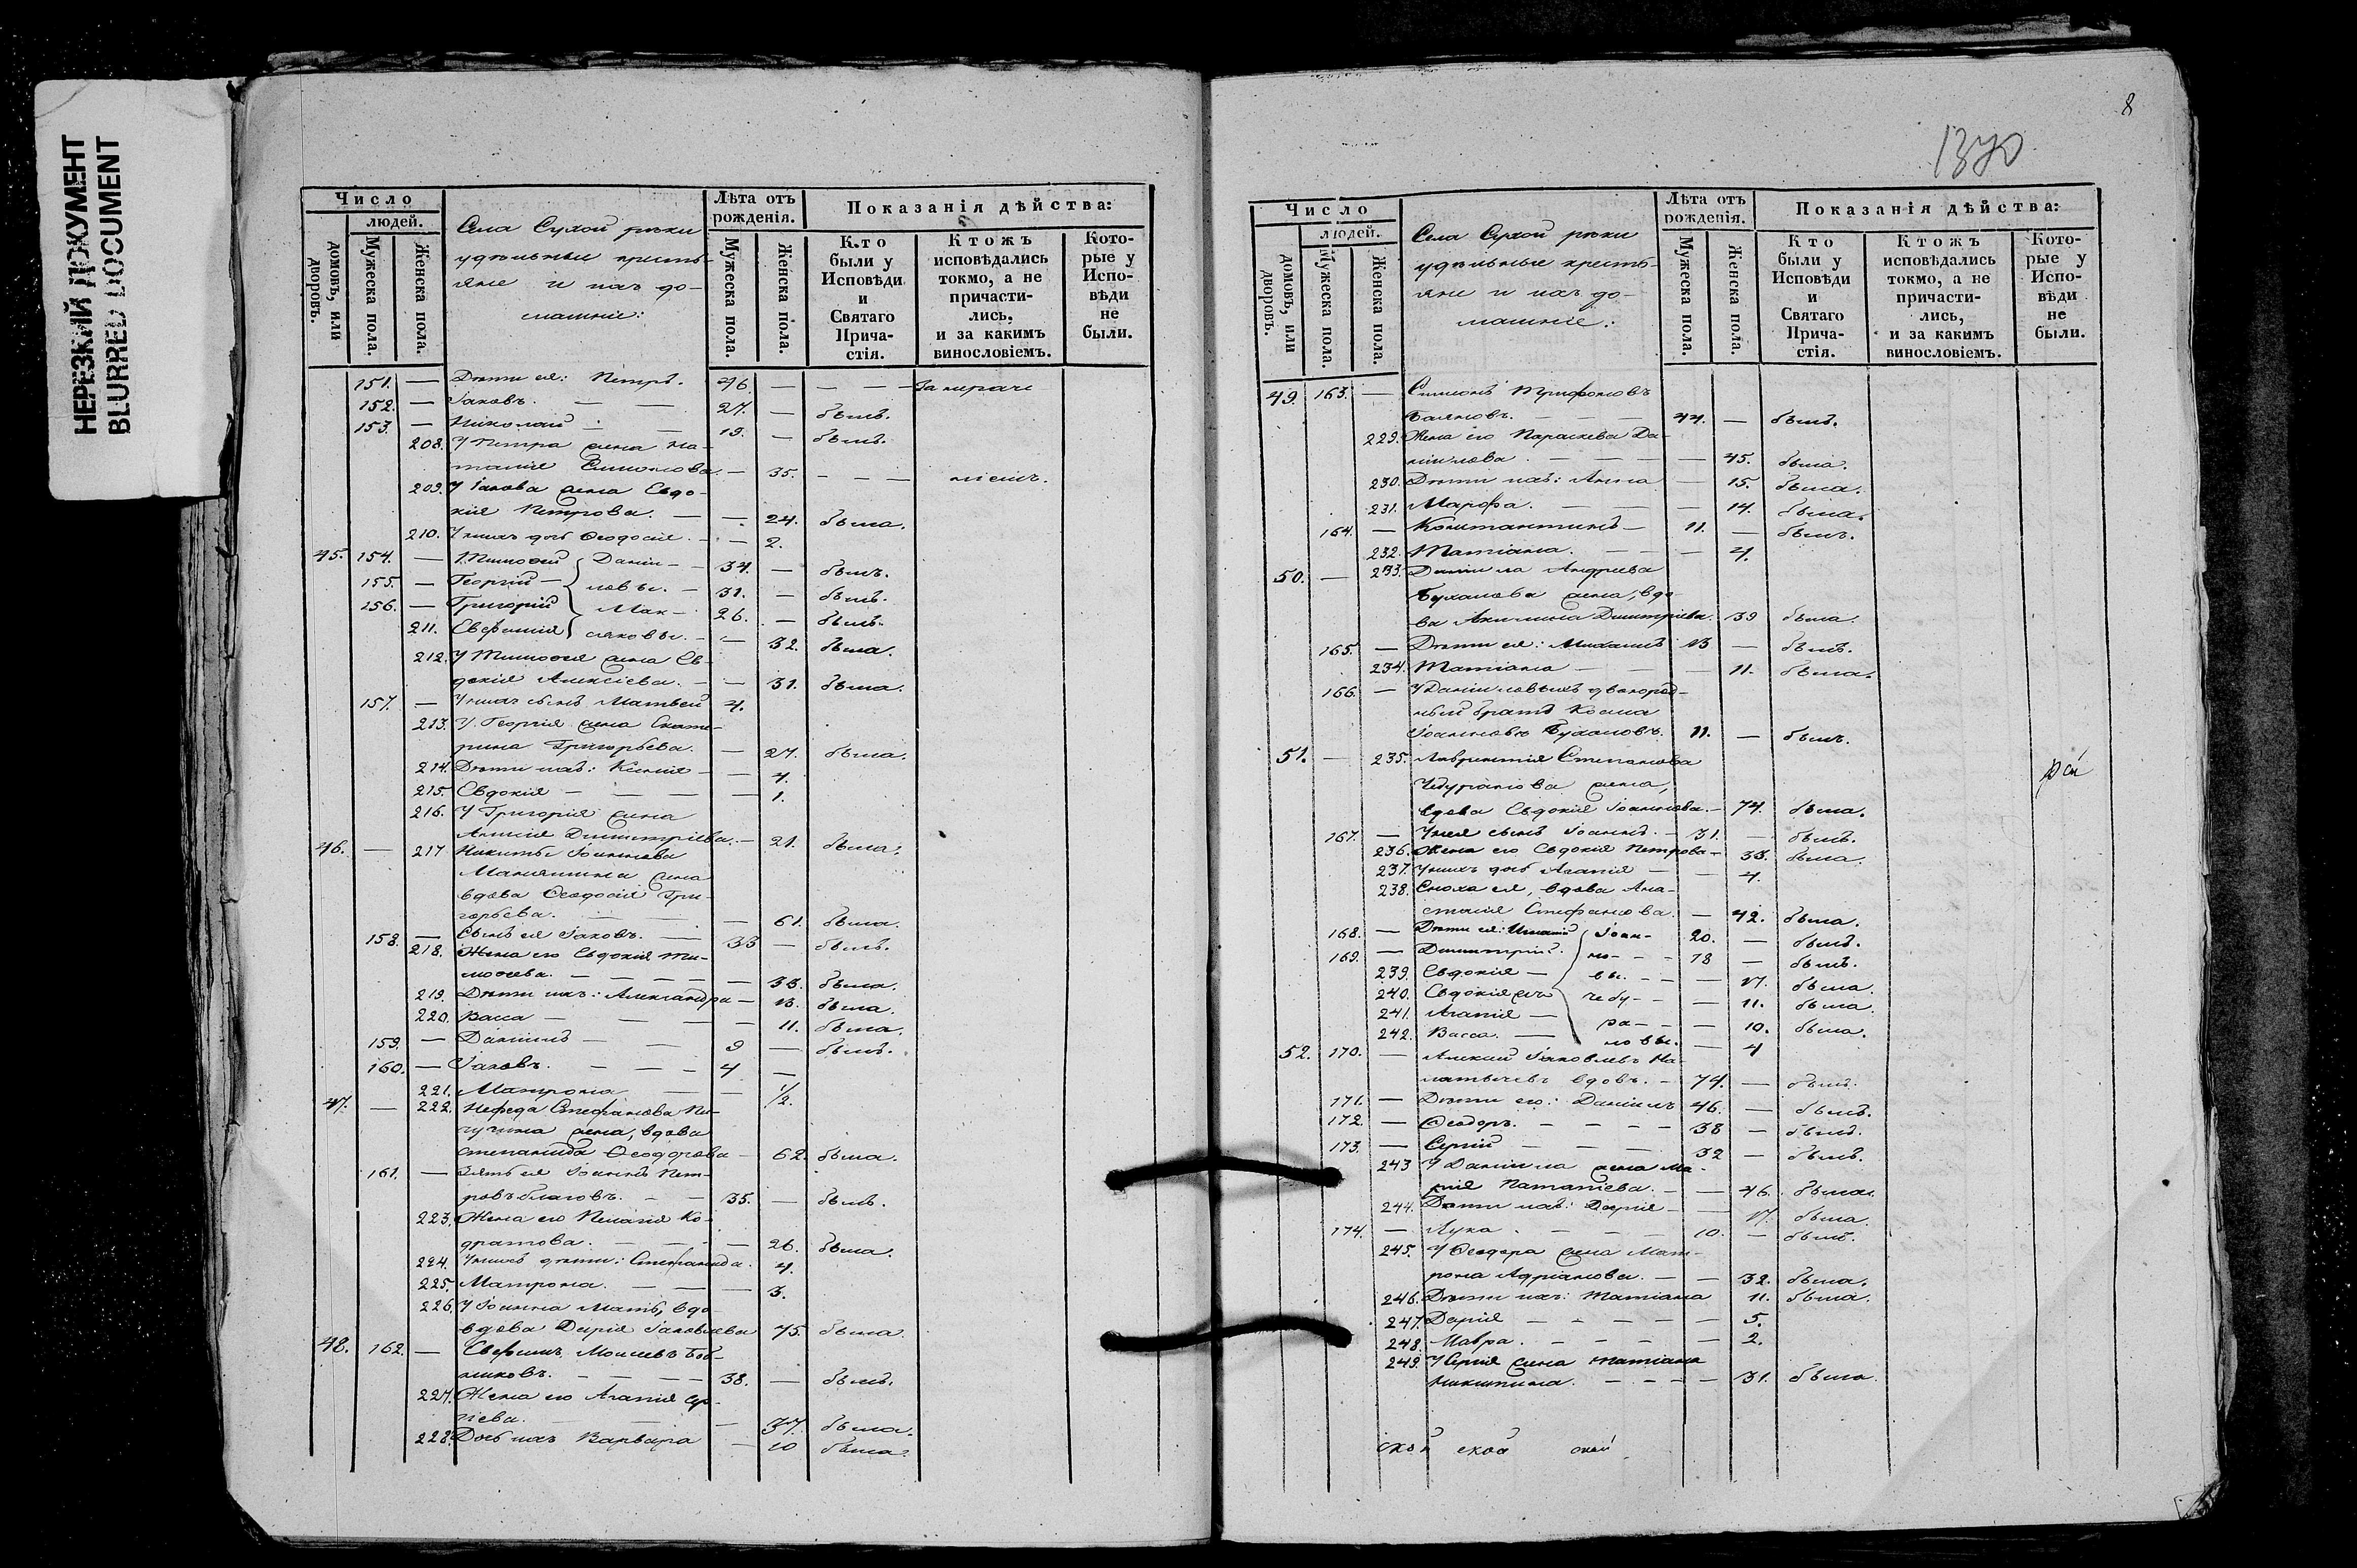 НЕРЕЗКИЙ ДОКУМЕНТ
BLURRED DOCUMENT
Число
людей.
домовъ, или дворовъ.
Мужеска пола.
Женска пола.
Села Сухой рѣки
удѣльные кресть-
яне и ихъ до-
машніе:
Лѣта отъ рожденія.
Мужеска пола.
Женска пола.
Показанія дѣйства:
Кто были у Исповѣди и Святаго Прича-стія.
Ктожъ исповѣдались токмо, а не причасти-лись, и за какимъ винословіемъ.
Кото-рые у Испо-вѣди не были.
151. — Дѣти ея: Петръ. 46 — — —
152. — Іаковъ. — — 27. — былъ.
153. — Николай — 19. — былъ.
208. У Петра жена На-
талія Симонова. — 35. — — —
209. У Іакова жена Евдо-
кія Петрова. — — 24. была.
210. У нихъ дочь Ѳеодосія. — — 2.
45. 154. — Тимоѳей Даніи- — 34. — былъ.
155. — Георгій — ловы. — 31. — былъ.
156. — Григорій Мак- 26. — былъ.
211. Евфимія саковы. — — 32. была.
212. У Тимоѳея жена Ев-
докія Алексіева. — — 31. была.
157. — У нихъ сынъ Матвей 4.
213. У Георгія жена Екате-
рина Григорьева. — 27. была.
214. Дѣти ихъ: Ксенія — — 4.
215. Евдокія — — — — 1.
216. У Григорія жена
Анисія Димитріева. — 21. была.
46. — 217 Никиты Іоаннова
жена
вдова Ѳеодосія Гри-
горьева. — — — 61. была.
158. — Сынъ ея Іаковъ. — 33 — былъ.
218. Жена его Евдокія Ти-
моѳеева. — — — — 33. была.
219. Дѣти ихъ: Александра — 13. была.
220. Васса — — — — 11. была.
159. — Даніилъ — — 9 — былъ.
160. — Іаковъ. — — — 4 —
221. Матрона — — 1/2.
47. — 222. Нефеда Стефанова Пи-
чугина жена, вдова
Степанида Ѳеодорова — 62. была.
161. — Зять ея Іоаннъ Пет-
ровъ Благовъ. — — 35. — былъ.
223. Жена его Пелагія Ко-
дратова. — — — — 26. была.
224. У нихъ дѣти: Степанида. 4.
225. Матрона. — — — 3.
226. У Іоанна мать, вдо-
вдова Дарія Іаковлева 75. была.
48. 162. — Евфимъ Моисеевъ Боб-
никовъ. — — — — 38. — былъ.
227. Жена его Агапія Сер-
гіева. — — — 37. была.
228. Дочь ихъ Варвара — 10 была.
8
1370
Число
людей.
домовъ, или дворовъ.
Мужеска пола.
Женска пола.
Села Сухой рѣки
удѣльные кресть-
яне и ихъ до-
машніе:
Лѣта отъ рожденія.
Мужеска пола.
Женска пола.
Показанія дѣйства:
Кто были у Исповѣди и Святаго Прича-стія.
Ктожъ исповѣдались токмо, а не причасти-лись, и за какимъ винословіемъ.
Кото-рые у Испо-вѣди не были.
49. 163. — Симеонъ Трифоновъ
— — — 44. — былъ.
229. Жена его Параскева Да-
ніилова. — — — — 45. была.
230. Дѣти ихъ: Анна — 15. была.
231. Марѳа. — — — — 14. была.
164. — Константинъ — 11. — былъ.
232. Матіана. — — — 4.
50. — 233. Даніила Андреева
Буханова жена, вдо-
ва Акилина Димитріева. 39 была.
165. — Дѣти ея: Михаилъ 13 — былъ.
234. Татіана — — — 11. была.
166. — У Даніиловыхъ двоюрод-
ный братъ Косма
Іоанновъ Бухановъ. 11. — былъ.
51. — 235. Лаврентія Степанова
Чебуранова жена,
вдова Евдокія Іоаннова. — 74. была.
167. — У нея сынъ Іоаннъ. — 31. — былъ.
236. Жена его Евдокія Петрова — 33. была.
237. У нихъ дочь Агапія — — 4.
238. Сноха ея, вдова Ана-
стасія Стефанова. — 42. была.
168. — Дѣти ея: Игнатій Іоан- 20. — былъ.
169. — Димитрій. но- — — 18 — былъ.
239. Евдокія — вы. — — — 17. была.
240. Евдокія жъ чебу- — — 11. была.
241. Агапія — ра- — — 10. была.
242. Васса. — новы. — 4
52. 170. — Алексій Іаковлевъ
вдовъ. — 74. — былъ.
171. — Дѣти его: Даніилъ 46. — былъ.
172. — Ѳеодоръ. — — — — 38 — былъ.
173. — Сергій — — — 32 — былъ.
243 У Даніила жена Ма-
рія Ипатіева. — — 46. была.
244. Дѣти ихъ: Дарія — — 17. была.
174. — Лука. — — — 10. — былъ.
245. У Ѳеодора жена Мат-
рона Адріанова. — — 32. была.
246. Дѣти ихъ: Татіана 11. была.
247. Дарія — — — — — 5.
248. Мавра. — — — — 2.
249. У Сергія жена Татіана
Никитина. — — — — 31. была.
ской ской ской